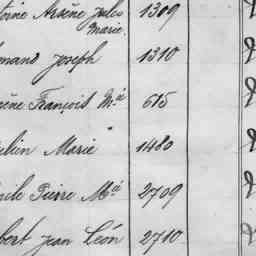 toine Arsène Jules 1309
Marie
mand Joseph 1310
ène François Mie 615
ulien Marie 1480
mile Pierre Mie 2709
bert Jean Léon 2710